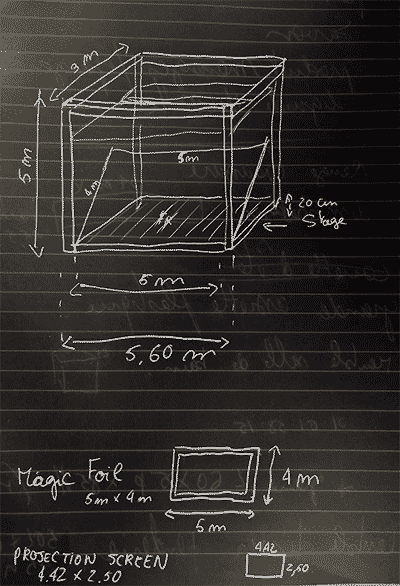 3 m
5 m
5m
4m
20 cm
Stage
5 m
5,60 m
Magic Foil
5m x 4m
4 m
5 m
PROJECTION SCREEN
4.42 x 2.50
4.42
2,50